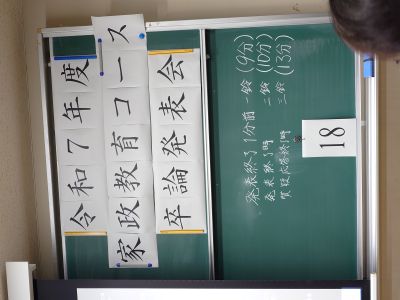 令和7年度
家政教育コース
卒論発表会
発表終了1分前 一鈴 (9分)
発表終了時 二鈴 (10分)
質疑応答終了時 三鈴 (13分)
18